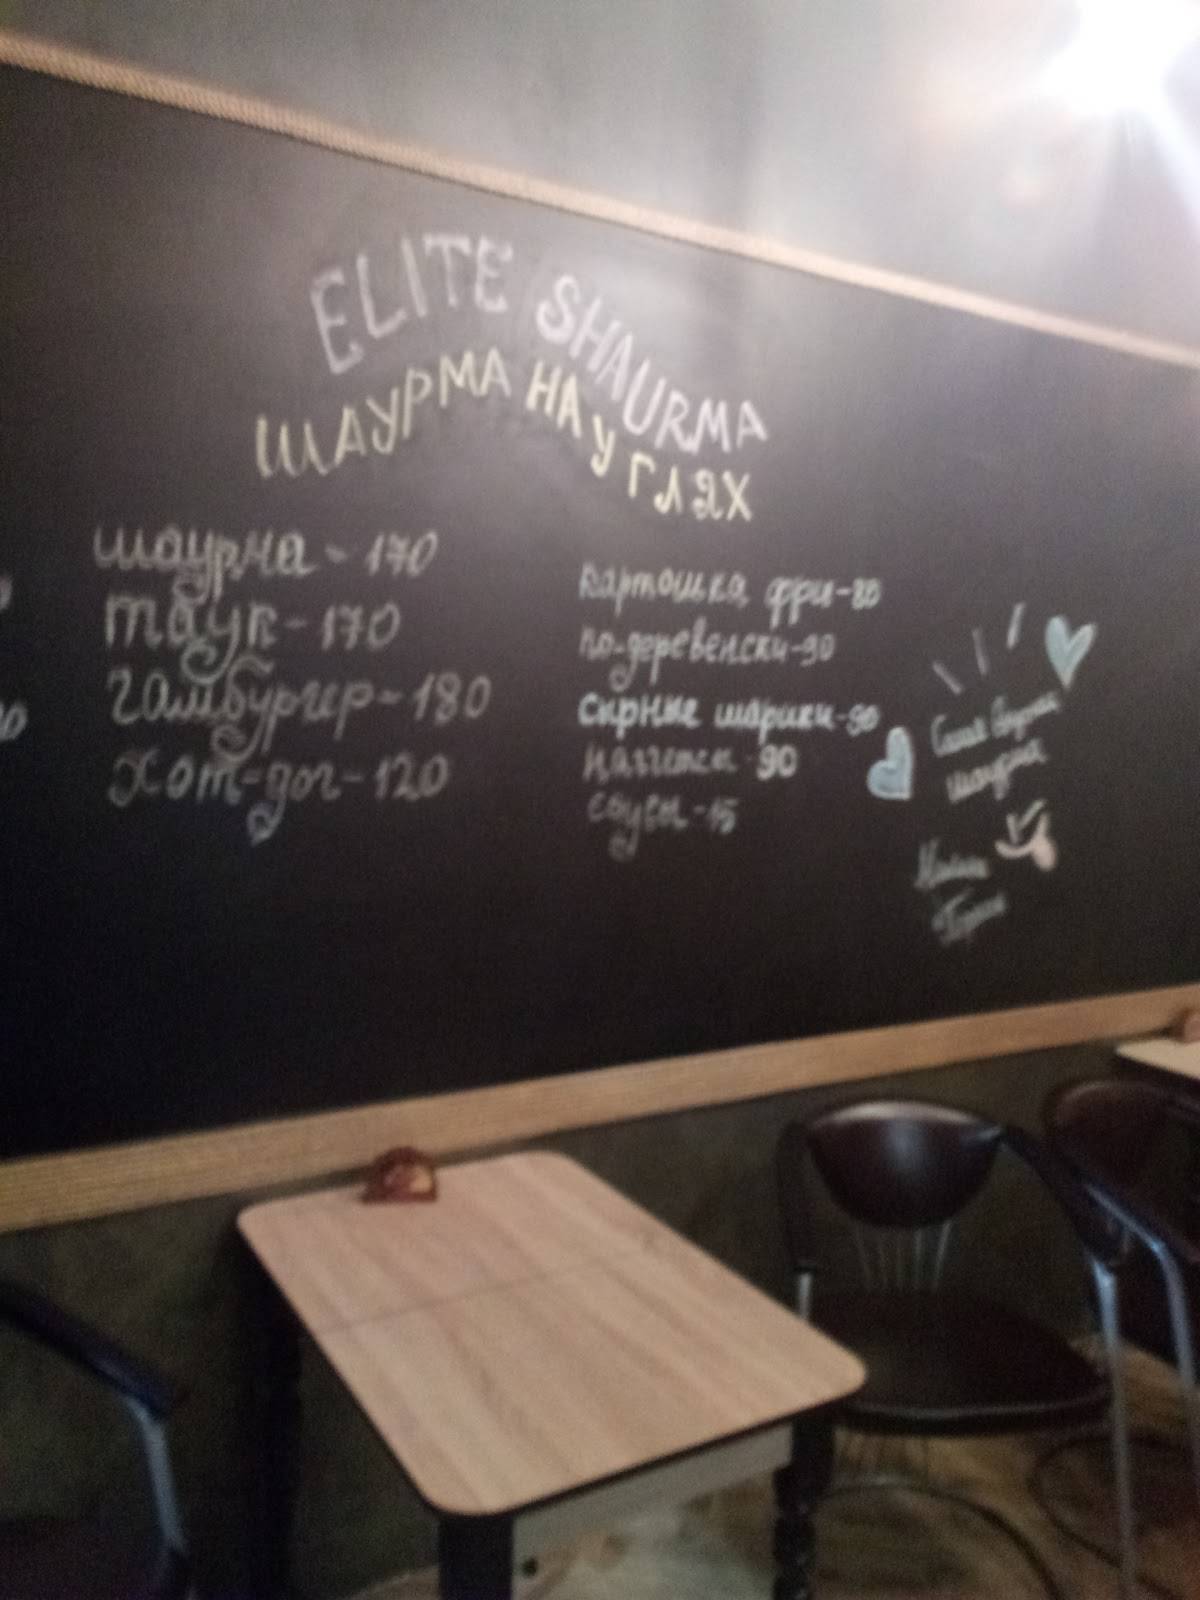 ELITE SHAURMA
ШАУРМА НА УГЛЯХ
шаурма - 170
таук - 170
гамбургер - 180
хот-дог - 120
картошка фри - 80
по-деревенски - 90
сырные шарики - 90
наггетсы - 90
соусы - 15
шаурма